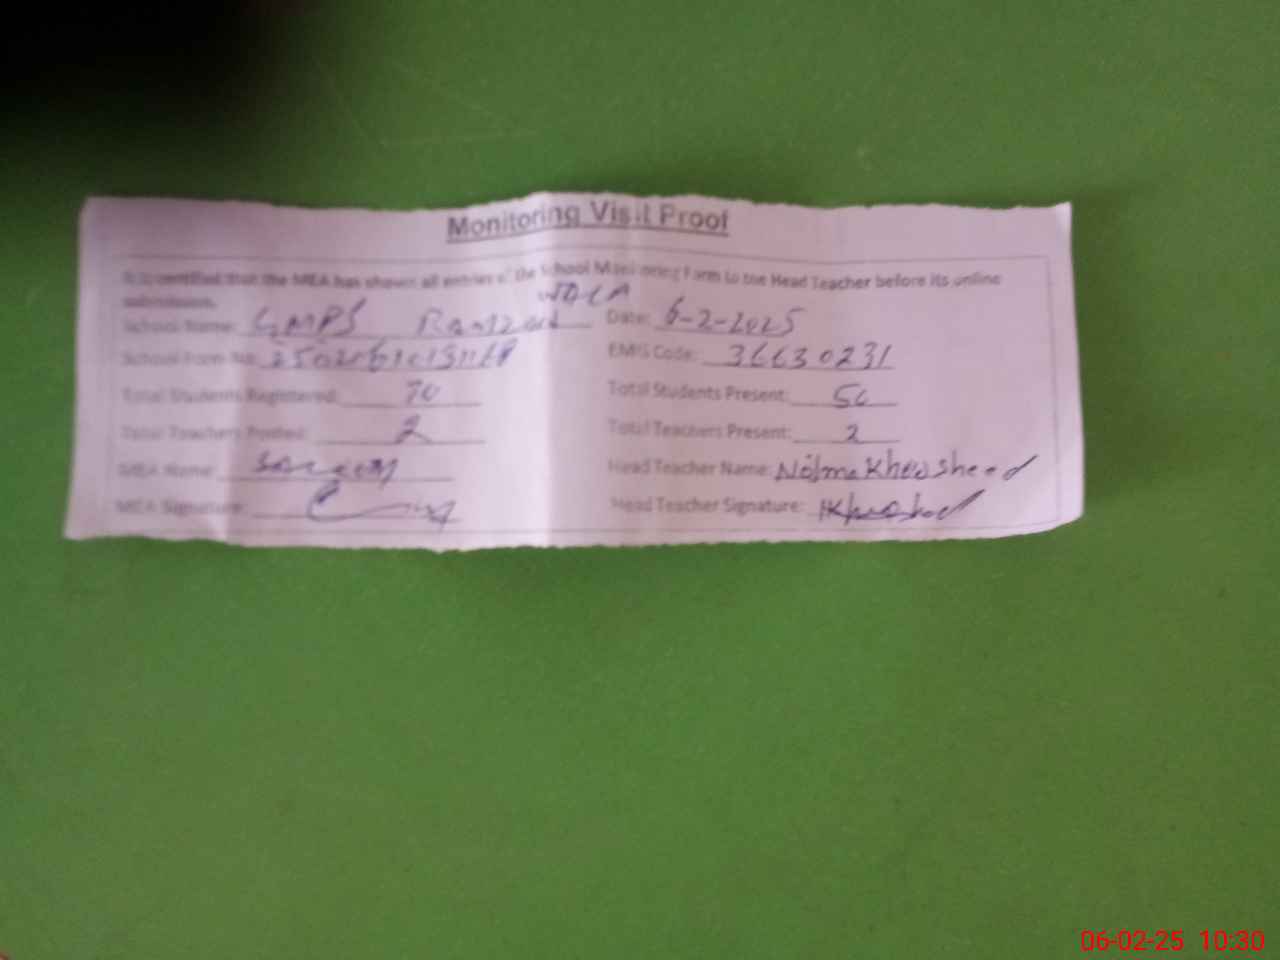 Monitoring Visit Proof
It is certified that the MEA has shown all entries of the School Monitoring Form to the Head Teacher before its online
submission.
WALA
School Name: GMPS Date: 6-2-2025
School Form No: EMIS Code: 36630231
Total Students Registered: 70 Total Students Present: 50
Total Teachers Posted: 2 Total Teachers Present: 2
MEA Name: Head Teacher Name: Khursheed
MEA Signature: Head Teacher Signature:
06-02-25 10:30